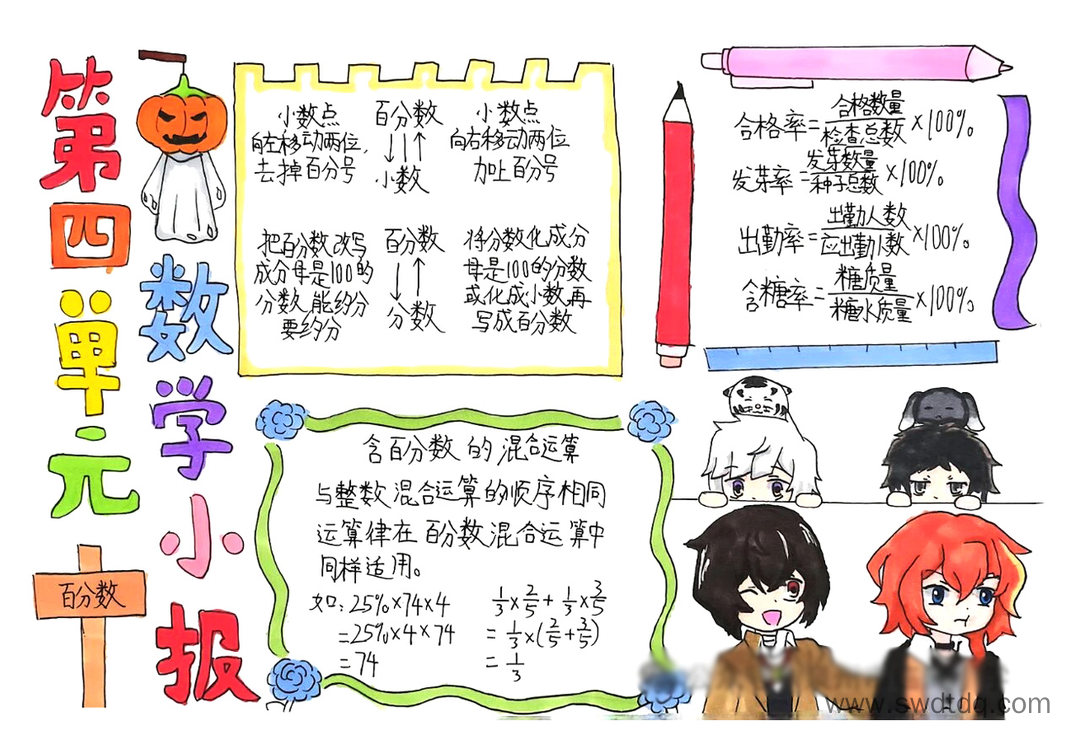 第四单元
数学小报
百分数
小数点
向左移动两位,
去掉百分号
百分数
小数
小数点
向右移动两位
加上百分号
把百分数改写
成分母是100的
分数,能约分
要约分
百分数
分数
将分数化成分
母是100的分数
或化成小数再
写成百分数
合格率=合格数量/检查总数×100%
发芽率=发芽数量/种子总数×100%
出勤率=出勤人数/应出勤人数×100%
含糖率=糖质量/糖水质量×100%
含百分数的混合运算
与整数混合运算的顺序相同
运算律在百分数混合运算中
同样适用。
如:25%×74×4
=25%×4×74
=74
1/3×2/5+1/3×3/5
=1/3×(2/5+3/5)
=1/3
www.swdtdq.com